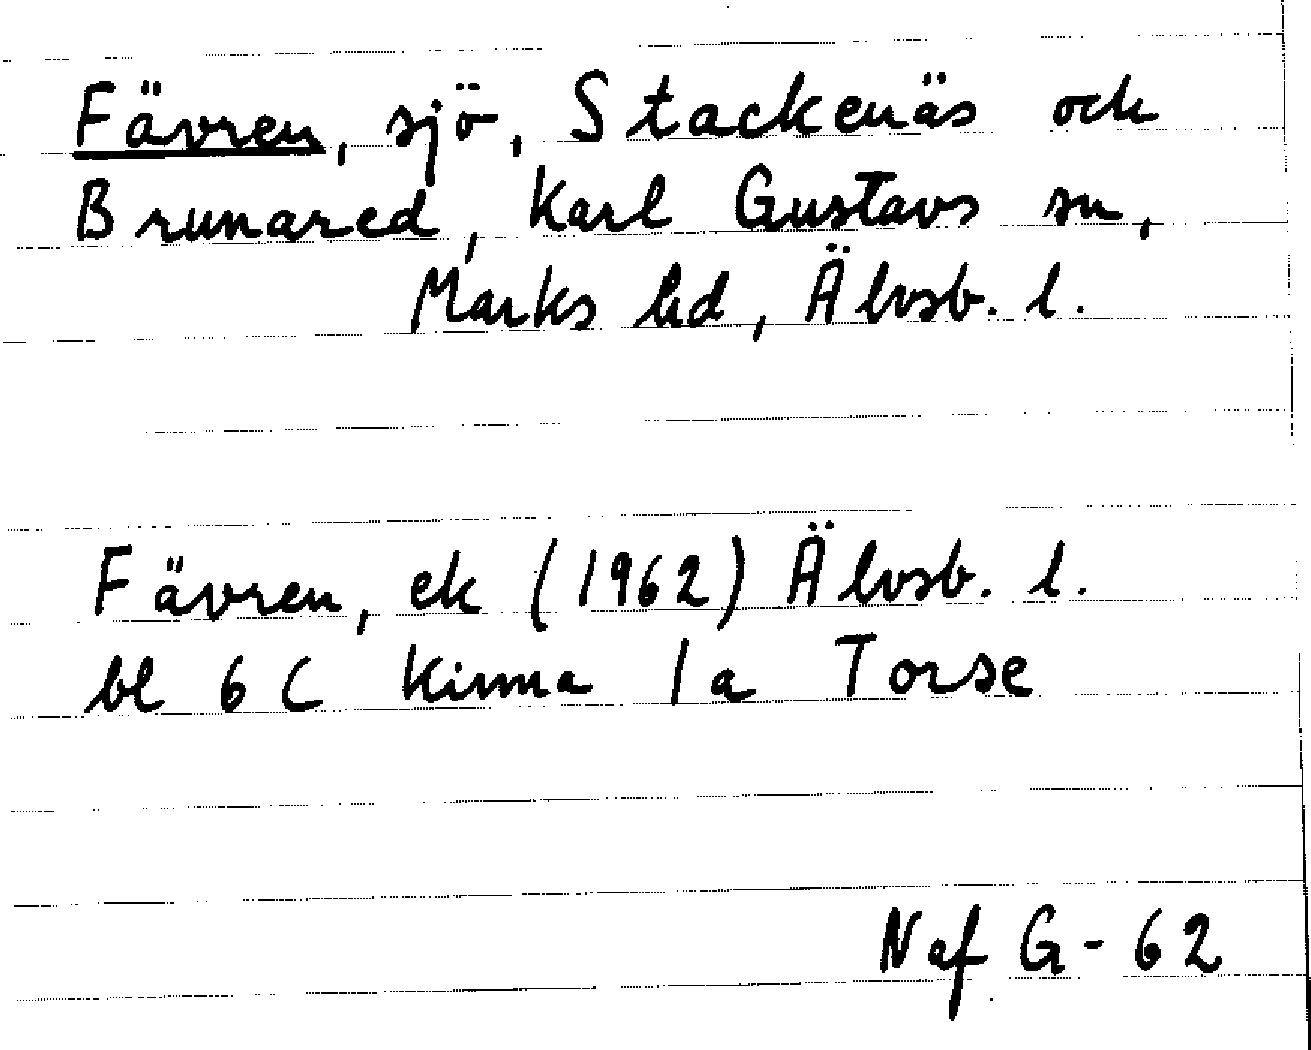 Fävren, sjö, Stackenäs och
Brunared, Karl Gustavs sn,
Marks hd, Älvsb. l.
Fävren, ek (1962) Älvsb. l.
bl 6 C Kinna 1a Torse
Naf G-62